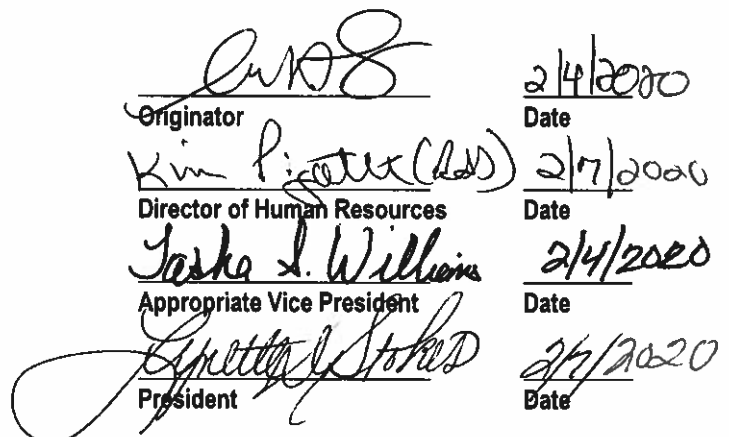 2/4/2020
Originator Date
Kim 2/7/2020
Director of Human Resources Date
Tasha S. Williams 2/4/2020
Appropriate Vice President Date
Stokes 2/7/2020
President Date